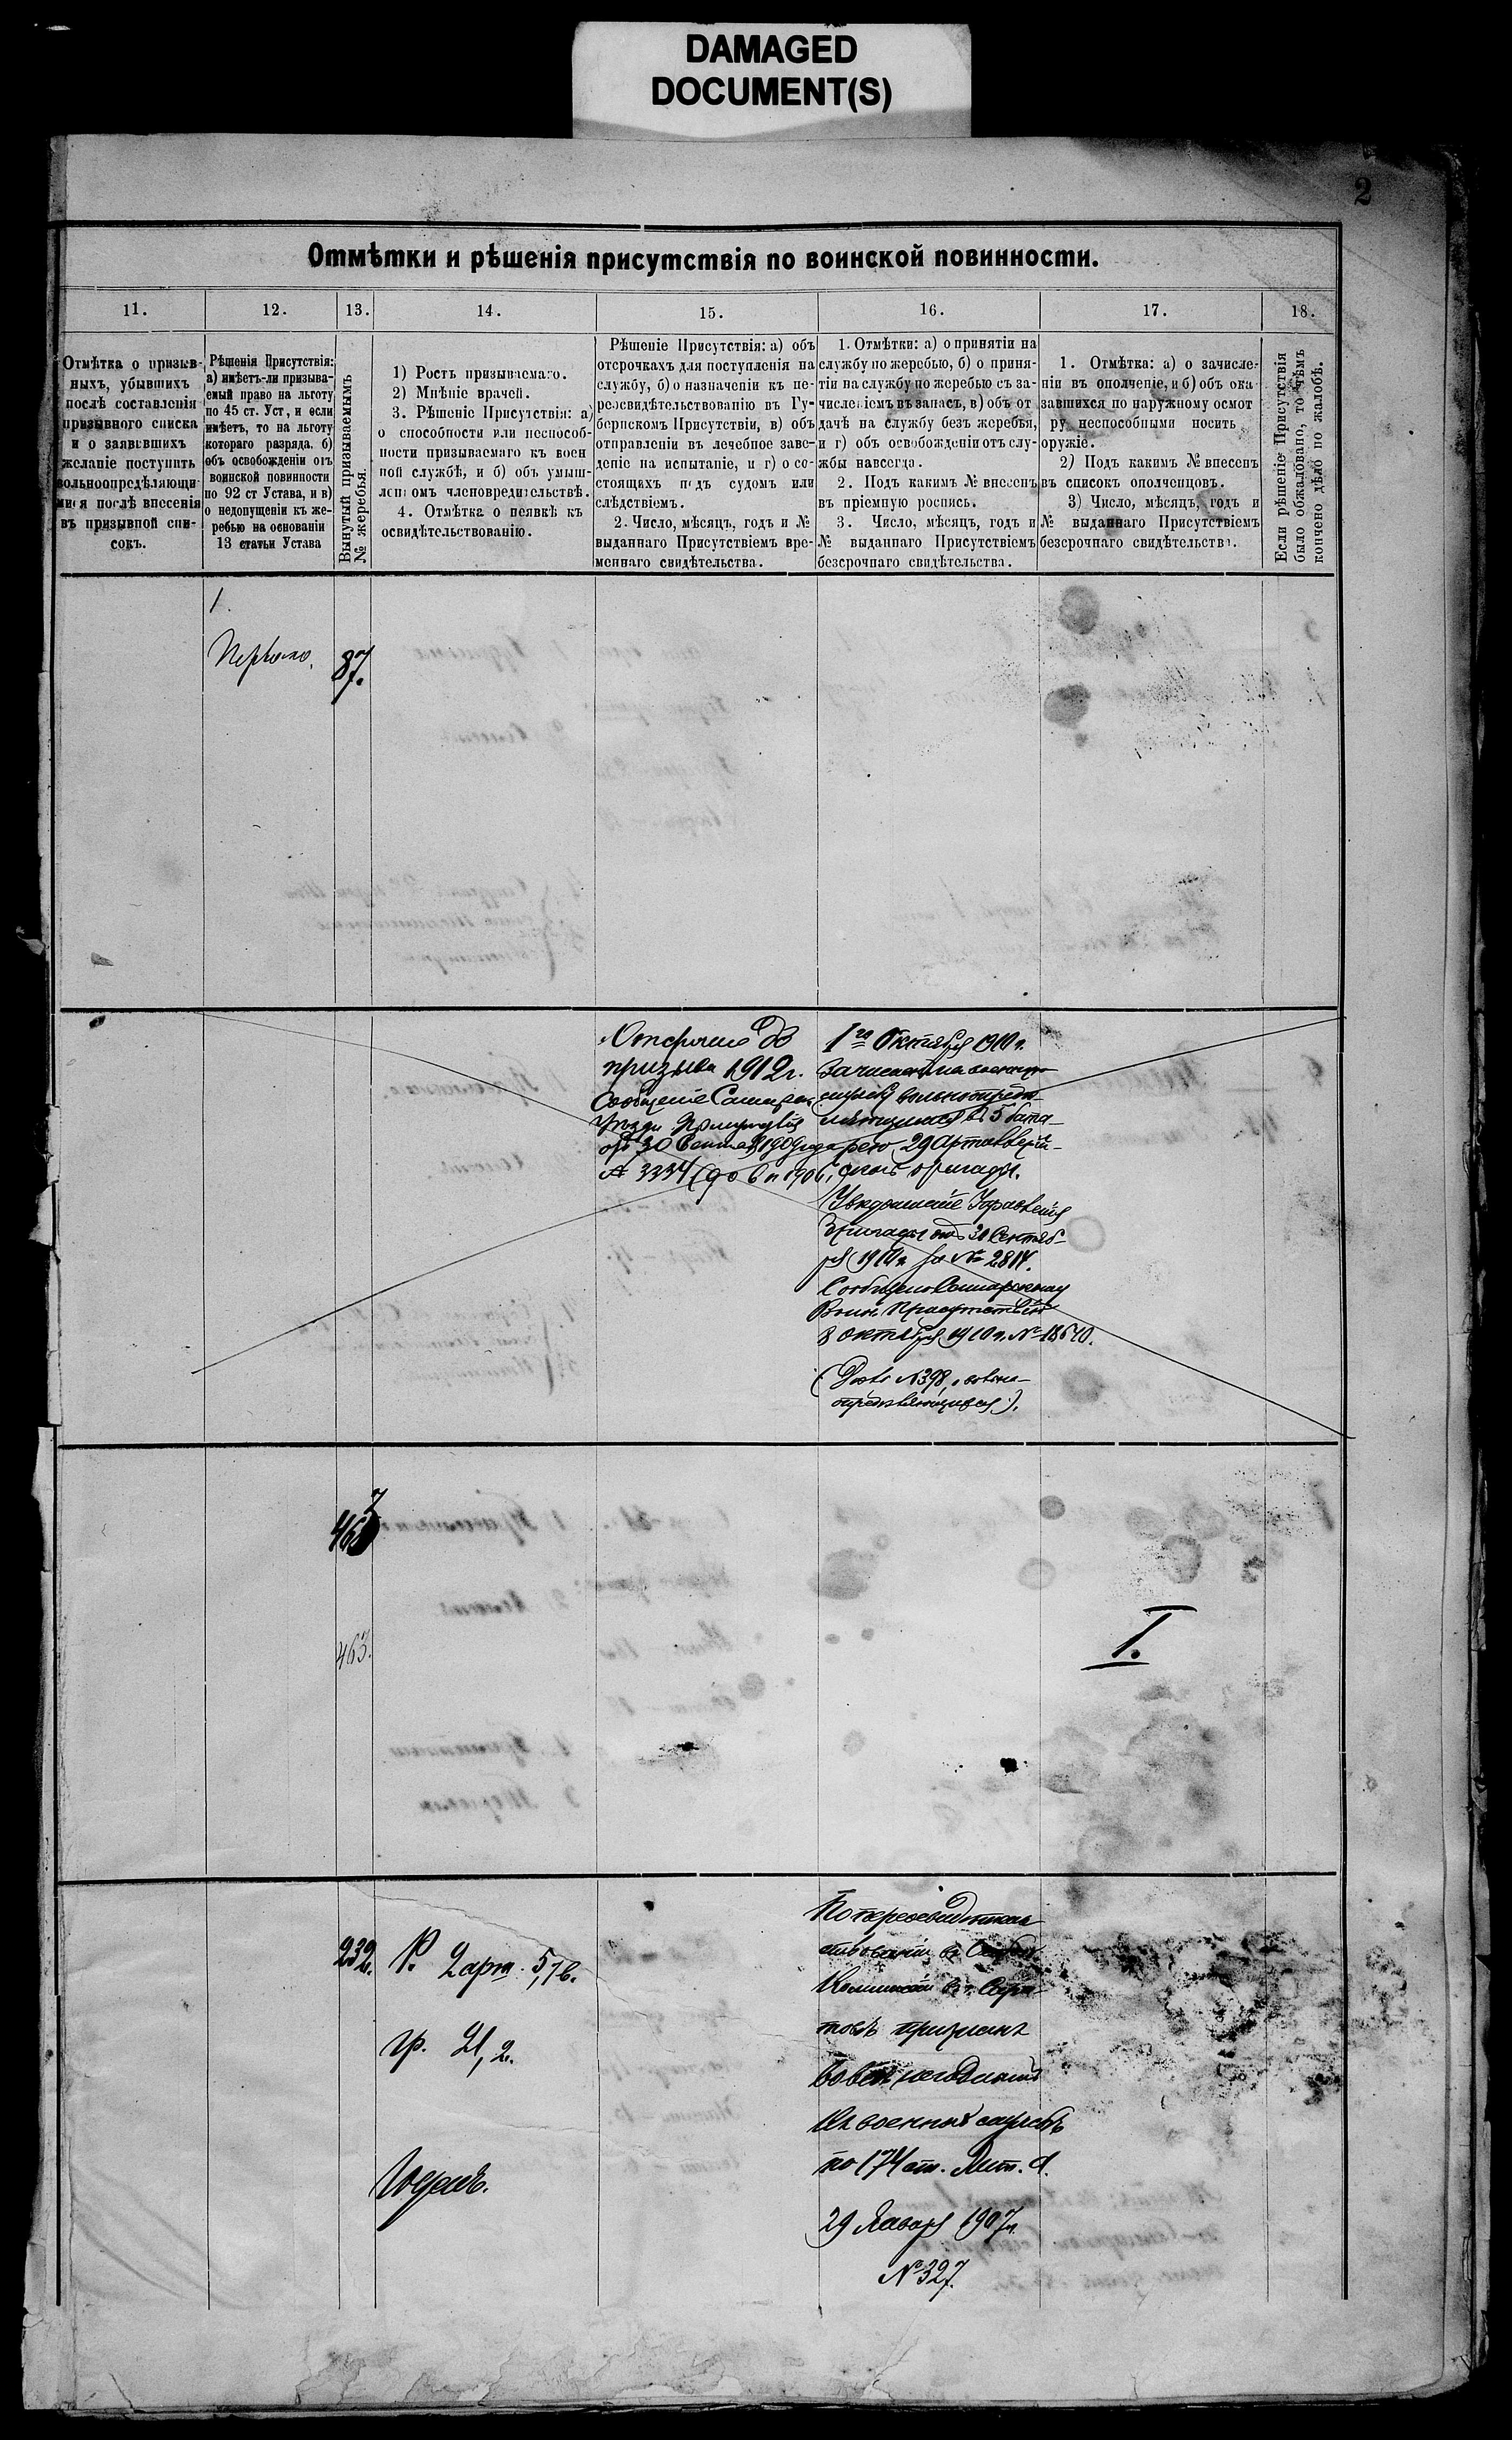 DAMAGED
DOCUMENT(S)
2
Отмѣтки и рѣшенія присутствія по воинской повинности.
11.
12.
13.
14.
15.
16.
17.
18.
Отмѣтка о призыв-
ныхъ, убывшихъ
послѣ составленія
призывного списка
и о заявившихъ
желаніе поступить
вольноопредѣляющи
мися послѣ внесенія
въ призывной спи-
сокъ.
Рѣшенія Присутствія:
а) имѣетъ-ли призыва-
емый право на льготу
по 45 ст. Уст, и если
имѣетъ, то на льготу
котораго разряда. б)
объ освобожденіи отъ
воинской повинности
по 92 ст Устава, и в)
о недопущеніи къ же-
ребью на основаніи
13 статьи Устава
Вынутый призываемымъ
№ жеребья.
1) Ростъ призываемаго.
2) Мнѣніе врачей.
3. Рѣшеніе Присутствія: а)
о способности или неспособ-
ности призываемаго къ воен
ной службѣ, и б) объ умыш-
ленномъ членовредительствѣ.
4. Отмѣтка о неявкѣ къ
освидѣтельствованію.
Рѣшеніе Присутствія: а) объ
отсрочкахъ для поступленія на
службу, б) о назначеніи къ пе-
реосвидѣтельствованію въ Гу-
бернскомъ Присутствіи, в) объ
отправленіи въ лечебное заве-
деніе на испытаніе, и г) о со-
стоящихъ подъ судомъ или
слѣдствіемъ.
2. Число, мѣсяцъ, годъ и №
выданнаго Присутствіемъ вре-
меннаго свидѣтельства.
1. Отмѣтки: а) о принятіи на
службу по жеребью, б) о приня-
тіи на службу по жеребью съ за-
численіемъ въ запасъ, в) объ от
дачѣ на службу безъ жеребья,
и г) объ освобожденіи отъ слу-
жбы навсегда.
2. Подъ какимъ № внесенъ
въ пріемную роспись.
3. Число, мѣсяцъ, годъ и
№ выданнаго Присутствіемъ
безсрочнаго свидѣтельства.
1. Отмѣтка: а) о зачисле-
ніи въ ополченіе, и б) объ ока
завшихся по наружному осмот
ру неспособными носить
оружіе.
2) Подъ какимъ № внесенъ
въ списокъ ополченцовъ.
3) Число, мѣсяцъ, годъ и
№ выданнаго Присутствіемъ
безсрочнаго свидѣтельства.
Если рѣшеніе Присутствія
было обжаловано, то чѣмъ
кончено дѣло по жалобѣ.
1.
87.
призыва 1912 г.
Сообщеніе
30 1909 года
№ 3334
1го Октября 1910 г.
Зачисленъ на военную
службу вольноопредѣ-
ляющимся въ 5 бата-
рею 29 Артиллерій-
ской бригады.
Увѣдомленіе Управленія
бригады отъ 30 Сентяб-
ря 1910 г. за № 2814.
Сообщено
Воин. Присутствію
8 октября 1910 г. № 18640.
(Дѣло № 398, о вольно-
опредѣляющихся).
467
463.
I.
232.
Р. 2 арш. 5,7 в.
гр. 21,2.
Годенъ.
По переосвидѣтель
ствованіи въ
Коммисіи въ г. Сара-
товѣ признанъ
вовсе негоднымъ
къ военной службѣ
по 174 ст. Лит. А.
29 Января 1907 г.
№ 327.